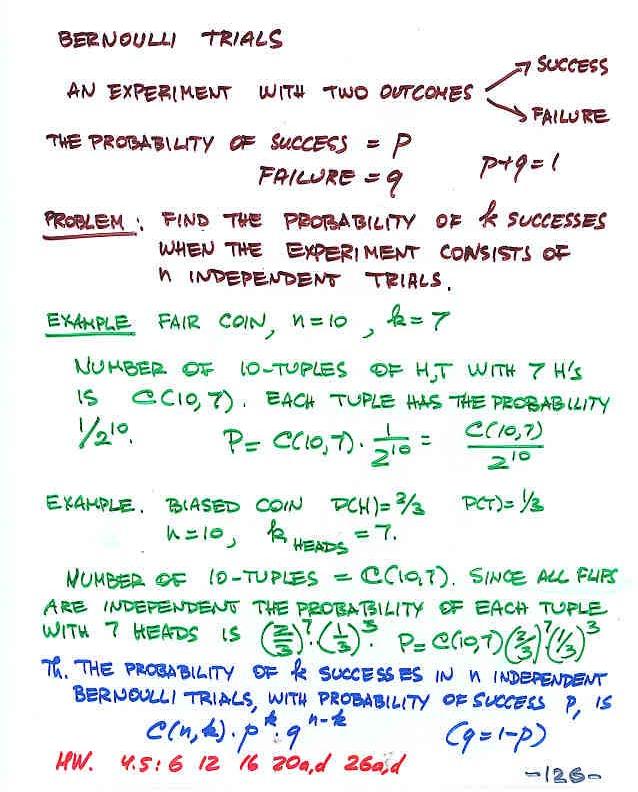 BERNOULLI TRIALS
AN EXPERIMENT WITH TWO OUTCOMES → SUCCESS
→ FAILURE
THE PROBABILITY OF SUCCESS = p
FAILURE = q p+q=1
PROBLEM: FIND THE PROBABILITY OF k SUCCESSES
WHEN THE EXPERIMENT CONSISTS OF
n INDEPENDENT TRIALS.
EXAMPLE FAIR COIN, n=10, k=7
NUMBER OF 10-TUPLES OF H,T WITH 7 H'S
IS C(10,7). EACH TUPLE HAS THE PROBABILITY
1/2^10. P= C(10,7)·1/2^10 = C(10,7)/2^10
EXAMPLE. BIASED COIN P(H)=2/3 P(T)=1/3
n=10, k HEADS =7.
NUMBER OF 10-TUPLES = C(10,7). SINCE ALL FLIPS
ARE INDEPENDENT THE PROBABILITY OF EACH TUPLE
WITH 7 HEADS IS (2/3)^7·(1/3)^3. P=C(10,7)(2/3)^7(1/3)^3
Th. THE PROBABILITY OF k SUCCESSES IN n INDEPENDENT
BERNOULLI TRIALS, WITH PROBABILITY OF SUCCESS p, IS
C(n,k)·p^k·q^n-k (q=1-p)
HW. 4.5: 6 12 16 20a,d 26a,d
-126-